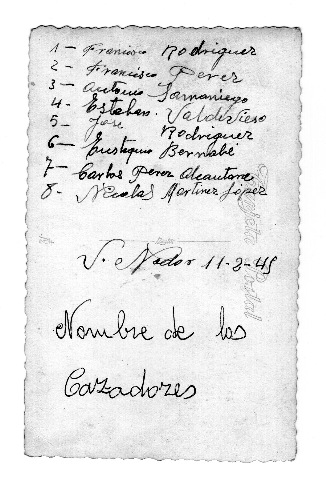 1 - Francisco Rodriguez
2 - Francisco Perez
3 - Antonio Samaniego
4 - Esteban. Valdivieso
5 - Jose Rodriguez
6 - Eustaquio Bernabé
7 - Carlos Perez Alcantara
8 - Nicolas Martinez López
V. Nador 11-3-45
Nombre de los
Cazadores
Tarjeta Postal